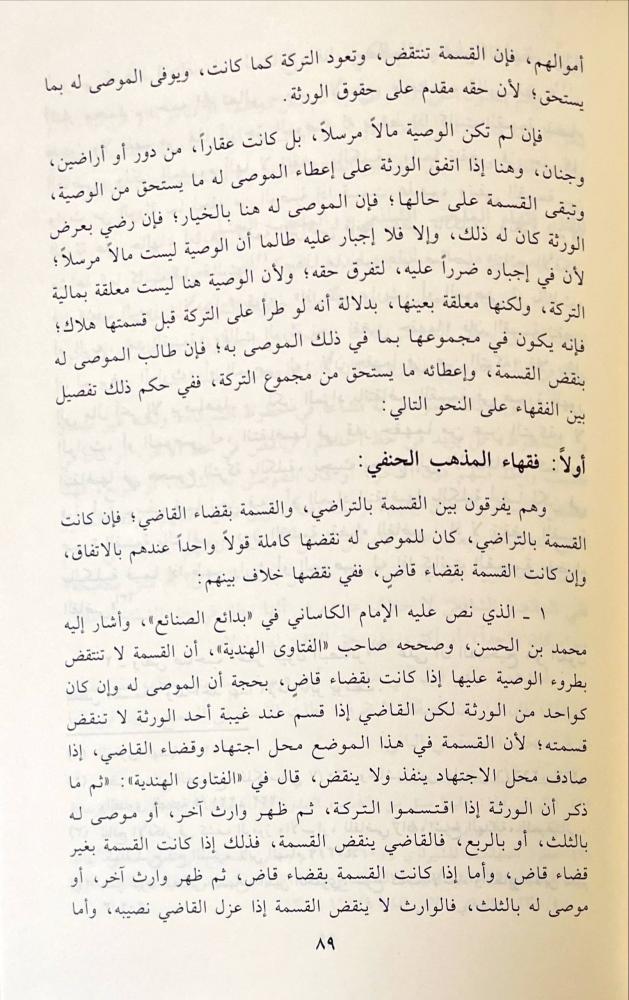 أموالهم، فإن القسمة تنتقض، وتعود التركة كما كانت، ويوفى الموصى له بما
يستحق؛ لأن حقه مقدم على حقوق الورثة.
فإن لم تكن الوصية مالاً مرسلاً، بل كانت عقاراً، من دور أو أراضين،
وجنان، وهنا إذا اتفق الورثة على إعطاء الموصى له ما يستحق من الوصية،
وتبقى القسمة على حالها؛ فإن الموصى له هنا بالخيار؛ فإن رضي بعرض
الورثة كان له ذلك، وإلا فلا إجبار عليه طالما أن الوصية ليست مالاً مرسلاً؛
لأن في إجباره ضرراً عليه، لتفرق حقه؛ ولأن الوصية هنا ليست معلقة بمالية
التركة، ولكنها معلقة بعينها، بدلالة أنه لو طرأ على التركة قبل قسمتها هلاك؛
فإنه يكون في مجموعها بما في ذلك الموصى به؛ فإن طالب الموصى له
بنقض القسمة، وإعطائه ما يستحق من مجموع التركة، ففي حكم ذلك تفصيل
بين الفقهاء على النحو التالي:
أولاً: فقهاء المذهب الحنفي:
وهم يفرقون بين القسمة بالتراضي، والقسمة بقضاء القاضي؛ فإن كانت
القسمة بالتراضي، كان للموصى له نقضها كاملة قولاً واحداً عندهم بالاتفاق،
وإن كانت القسمة بقضاء قاضٍ، ففي نقضها خلاف بينهم:
١ ـ الذي نص عليه الإمام الكاساني في «بدائع الصنائع»، وأشار إليه
محمد بن الحسن، وصححه صاحب «الفتاوى الهندية»، أن القسمة لا تنتقض
بطروء الوصية عليها إذا كانت بقضاء قاضٍ، بحجة أن الموصى له وإن كان
كواحد من الورثة لكن القاضي إذا قسم عند غيبة أحد الورثة لا تنقض
قسمته؛ لأن القسمة في هذا الموضع محل اجتهاد وقضاء القاضي، إذا
صادف محل الاجتهاد ينفذ ولا ينقض، قال في «الفتاوى الهندية»: «ثم ما
ذكر أن الورثة إذا اقتسموا التركة، ثم ظهر وارث آخر، أو موصى له
بالثلث، أو بالربع، فالقاضي ينقض القسمة، فذلك إذا كانت القسمة بغير
قضاء قاض، وأما إذا كانت القسمة بقضاء قاض، ثم ظهر وارث آخر، أو
موصى له بالثلث، فالوارث لا ينقض القسمة إذا عزل القاضي نصيبه، وأما
٨٩